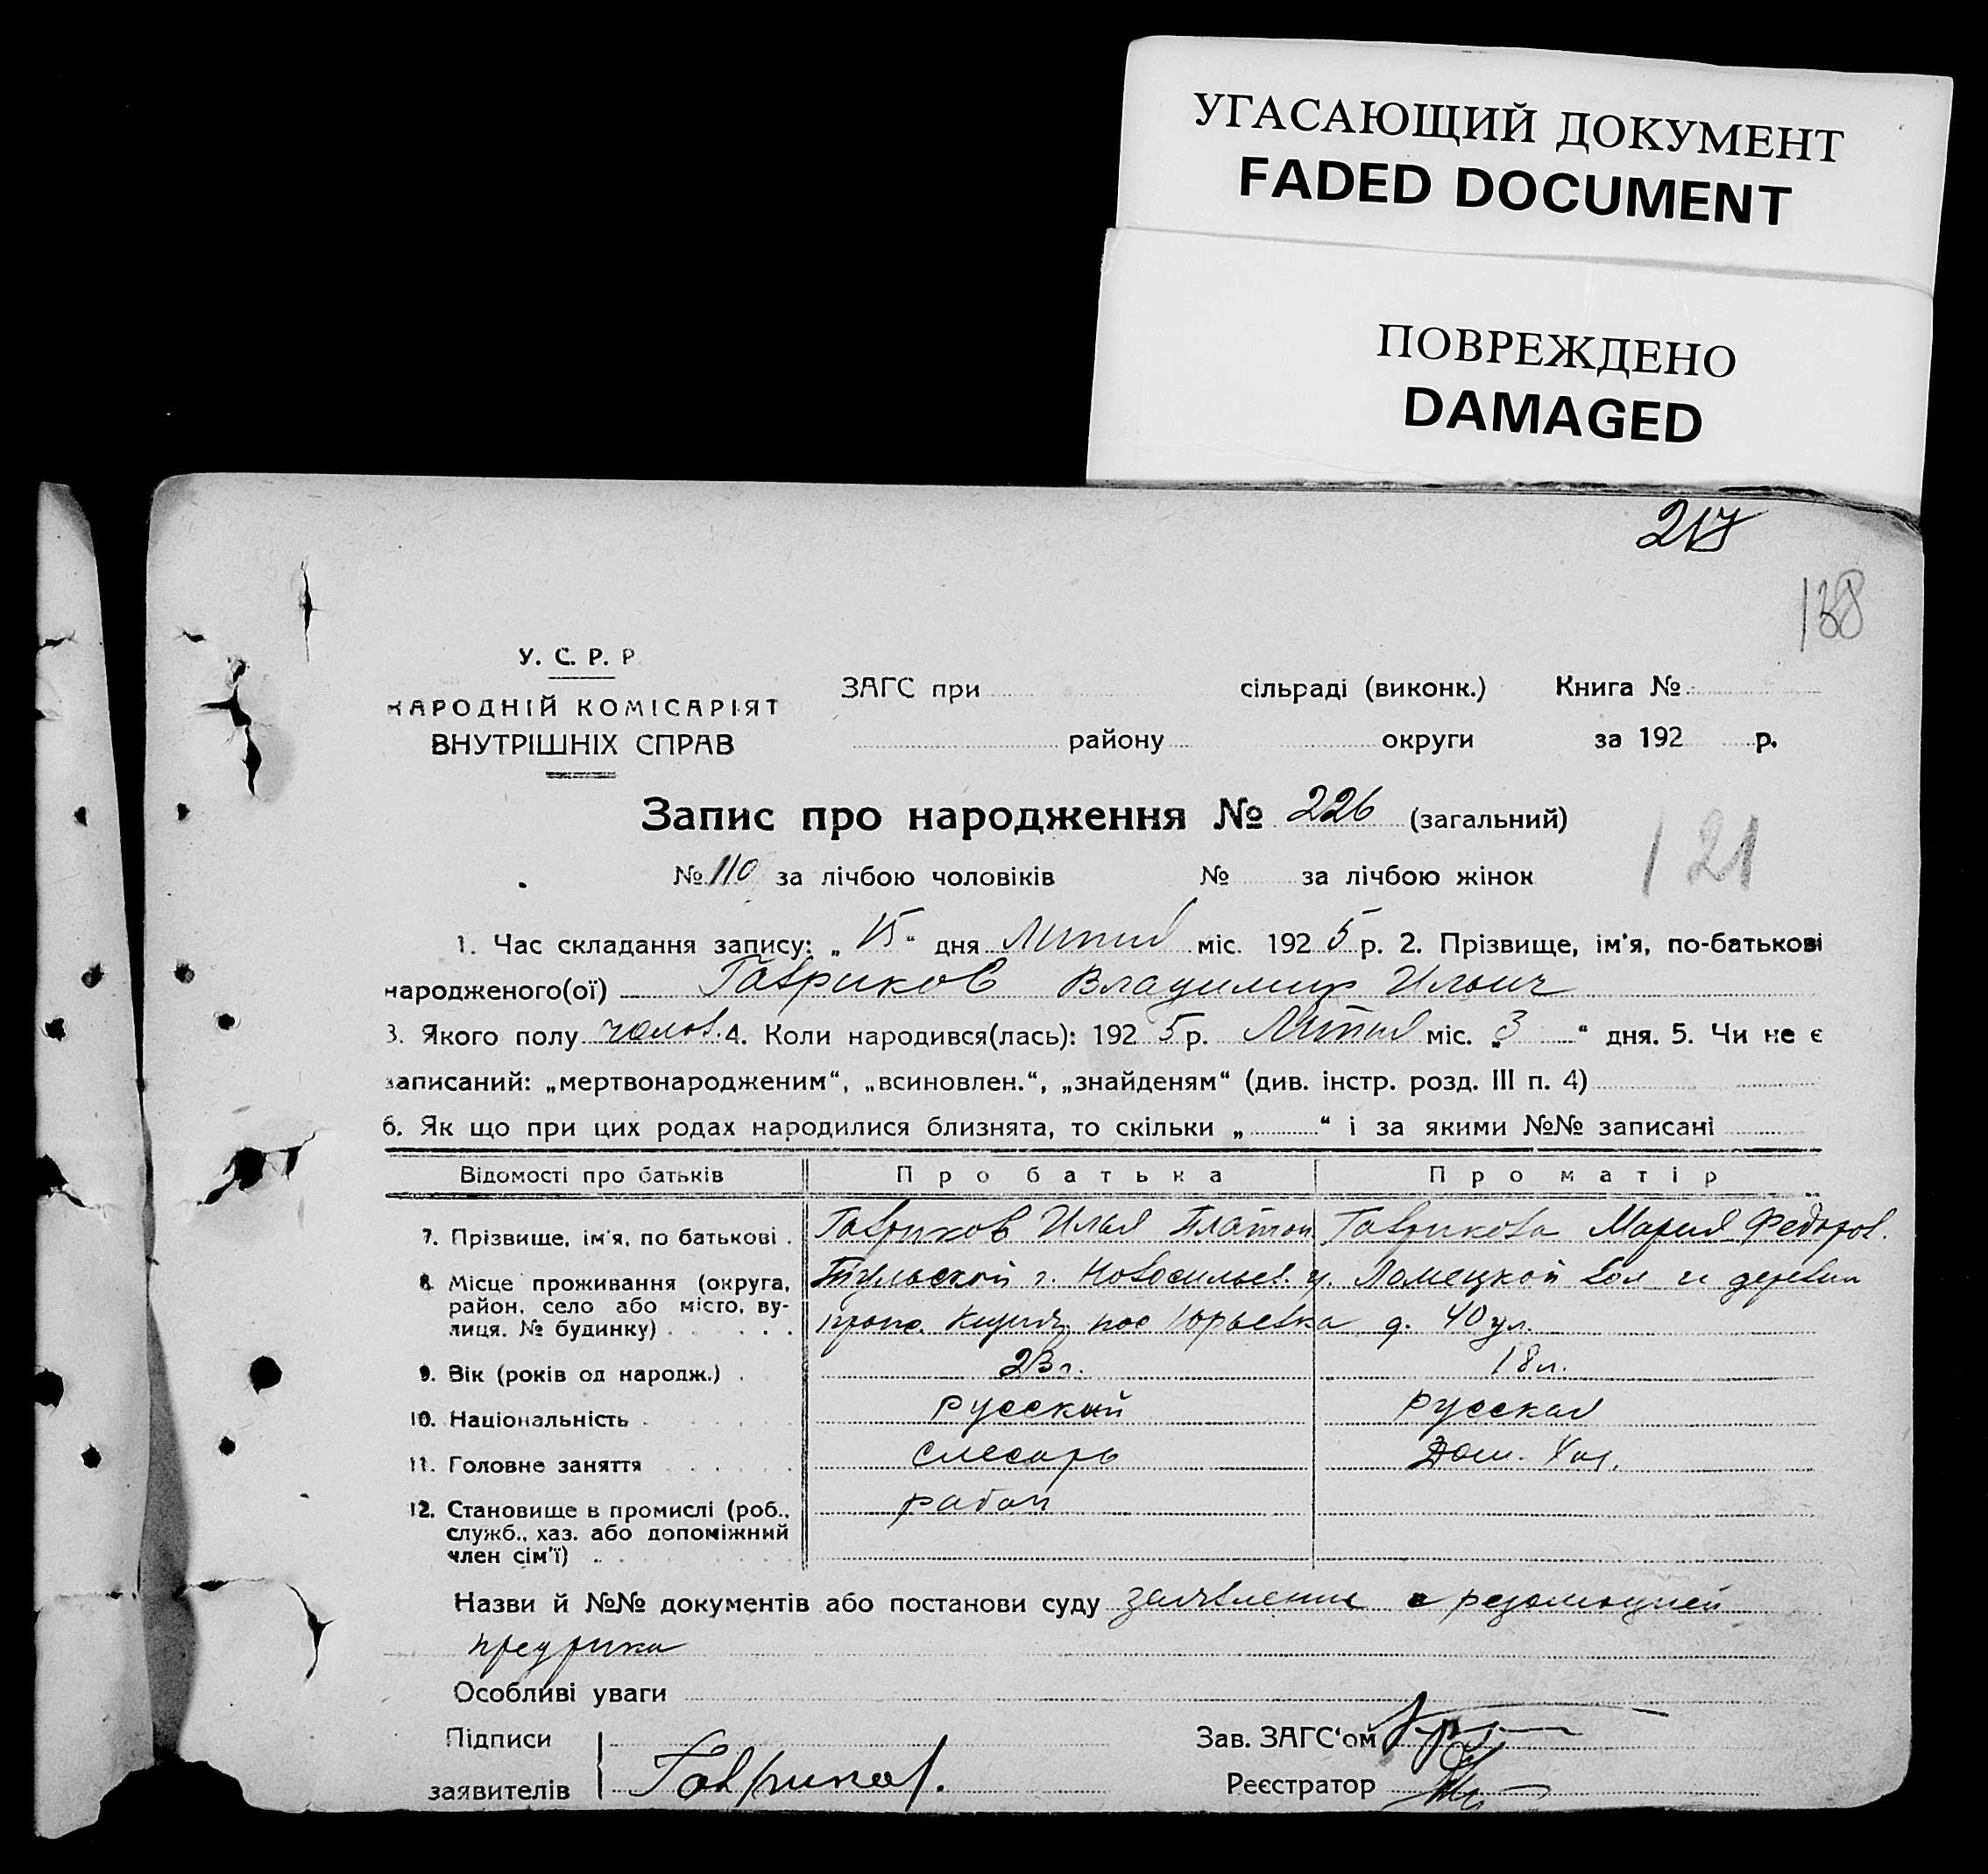 УГАСАЮЩИЙ ДОКУМЕНТ
FADED DOCUMENT
ПОВРЕЖДЕНО
DAMAGED
217
138
У. С. Р. Р
НАРОДНІЙ КОМІСАРІЯТ
ВНУТРІШНІХ СПРАВ
ЗАГС при сільраді (виконк.) Книга №
району округи за 192 р.
Запис про народження № 226 (загальний)
№ 110 за лічбою чоловіків № за лічбою жінок
121
1. Час складання запису: „ 15 “ дня Липня міс. 192 5 р. 2. Прізвище, ім'я, по-батькові
народженого(ої) Гавриков Владимир Ильич
3. Якого полу чолов. 4. Коли народився(лась): 192 5 р. Липня міс. „ 3 “ дня. 5. Чи не є
записаний: „мертвонародженим“, „всиновлен.“, „знайденям“ (див. інстр. розд. III п. 4)
6. Як що при цих родах народилися близнята, то скільки „ “ і за якими №№ записані
Відомості про батьків Про батька Про матір
7. Прізвище, ім'я, по батькові . Гавриков Илья Платон Гаврикова Мария Федоров.
8. Місце проживання (округа, район, село або місто, вулиця, № будинку) Тульской г. Новосильс. у. Ломецкой вол и деревни
пос Юрьевка д. 40 ул.
9. Вік (років од народж.) . 23 г. 18 л.
10. Національність . русский русская
11. Головне заняття слесарь Дом. Хоз.
12. Становище в промислі (роб., рабоч
служб., хаз. або допоміжний
член сім'ї)
Назви й №№ документів або постанови суду заявление с резолюцией
предрика
Особливі уваги
Підписи
заявителів Гавриков.
Зав. ЗАГС'ом
Реєстратор